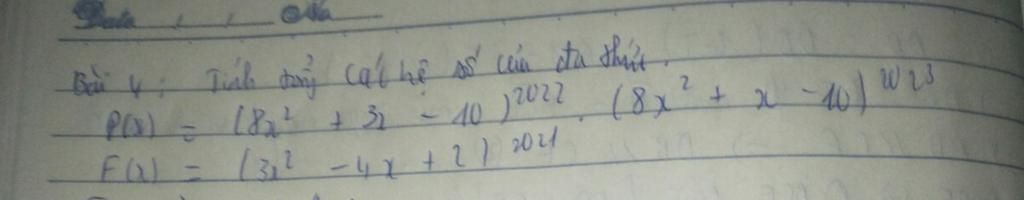 Bài 4: Tính tổng các hệ số của đa thức.
P(x) = (8x² + 3x - 10)²⁰²² . (8x² + x - 10)²⁰²³
F(x) = (3x² - 4x + 2)²⁰²¹